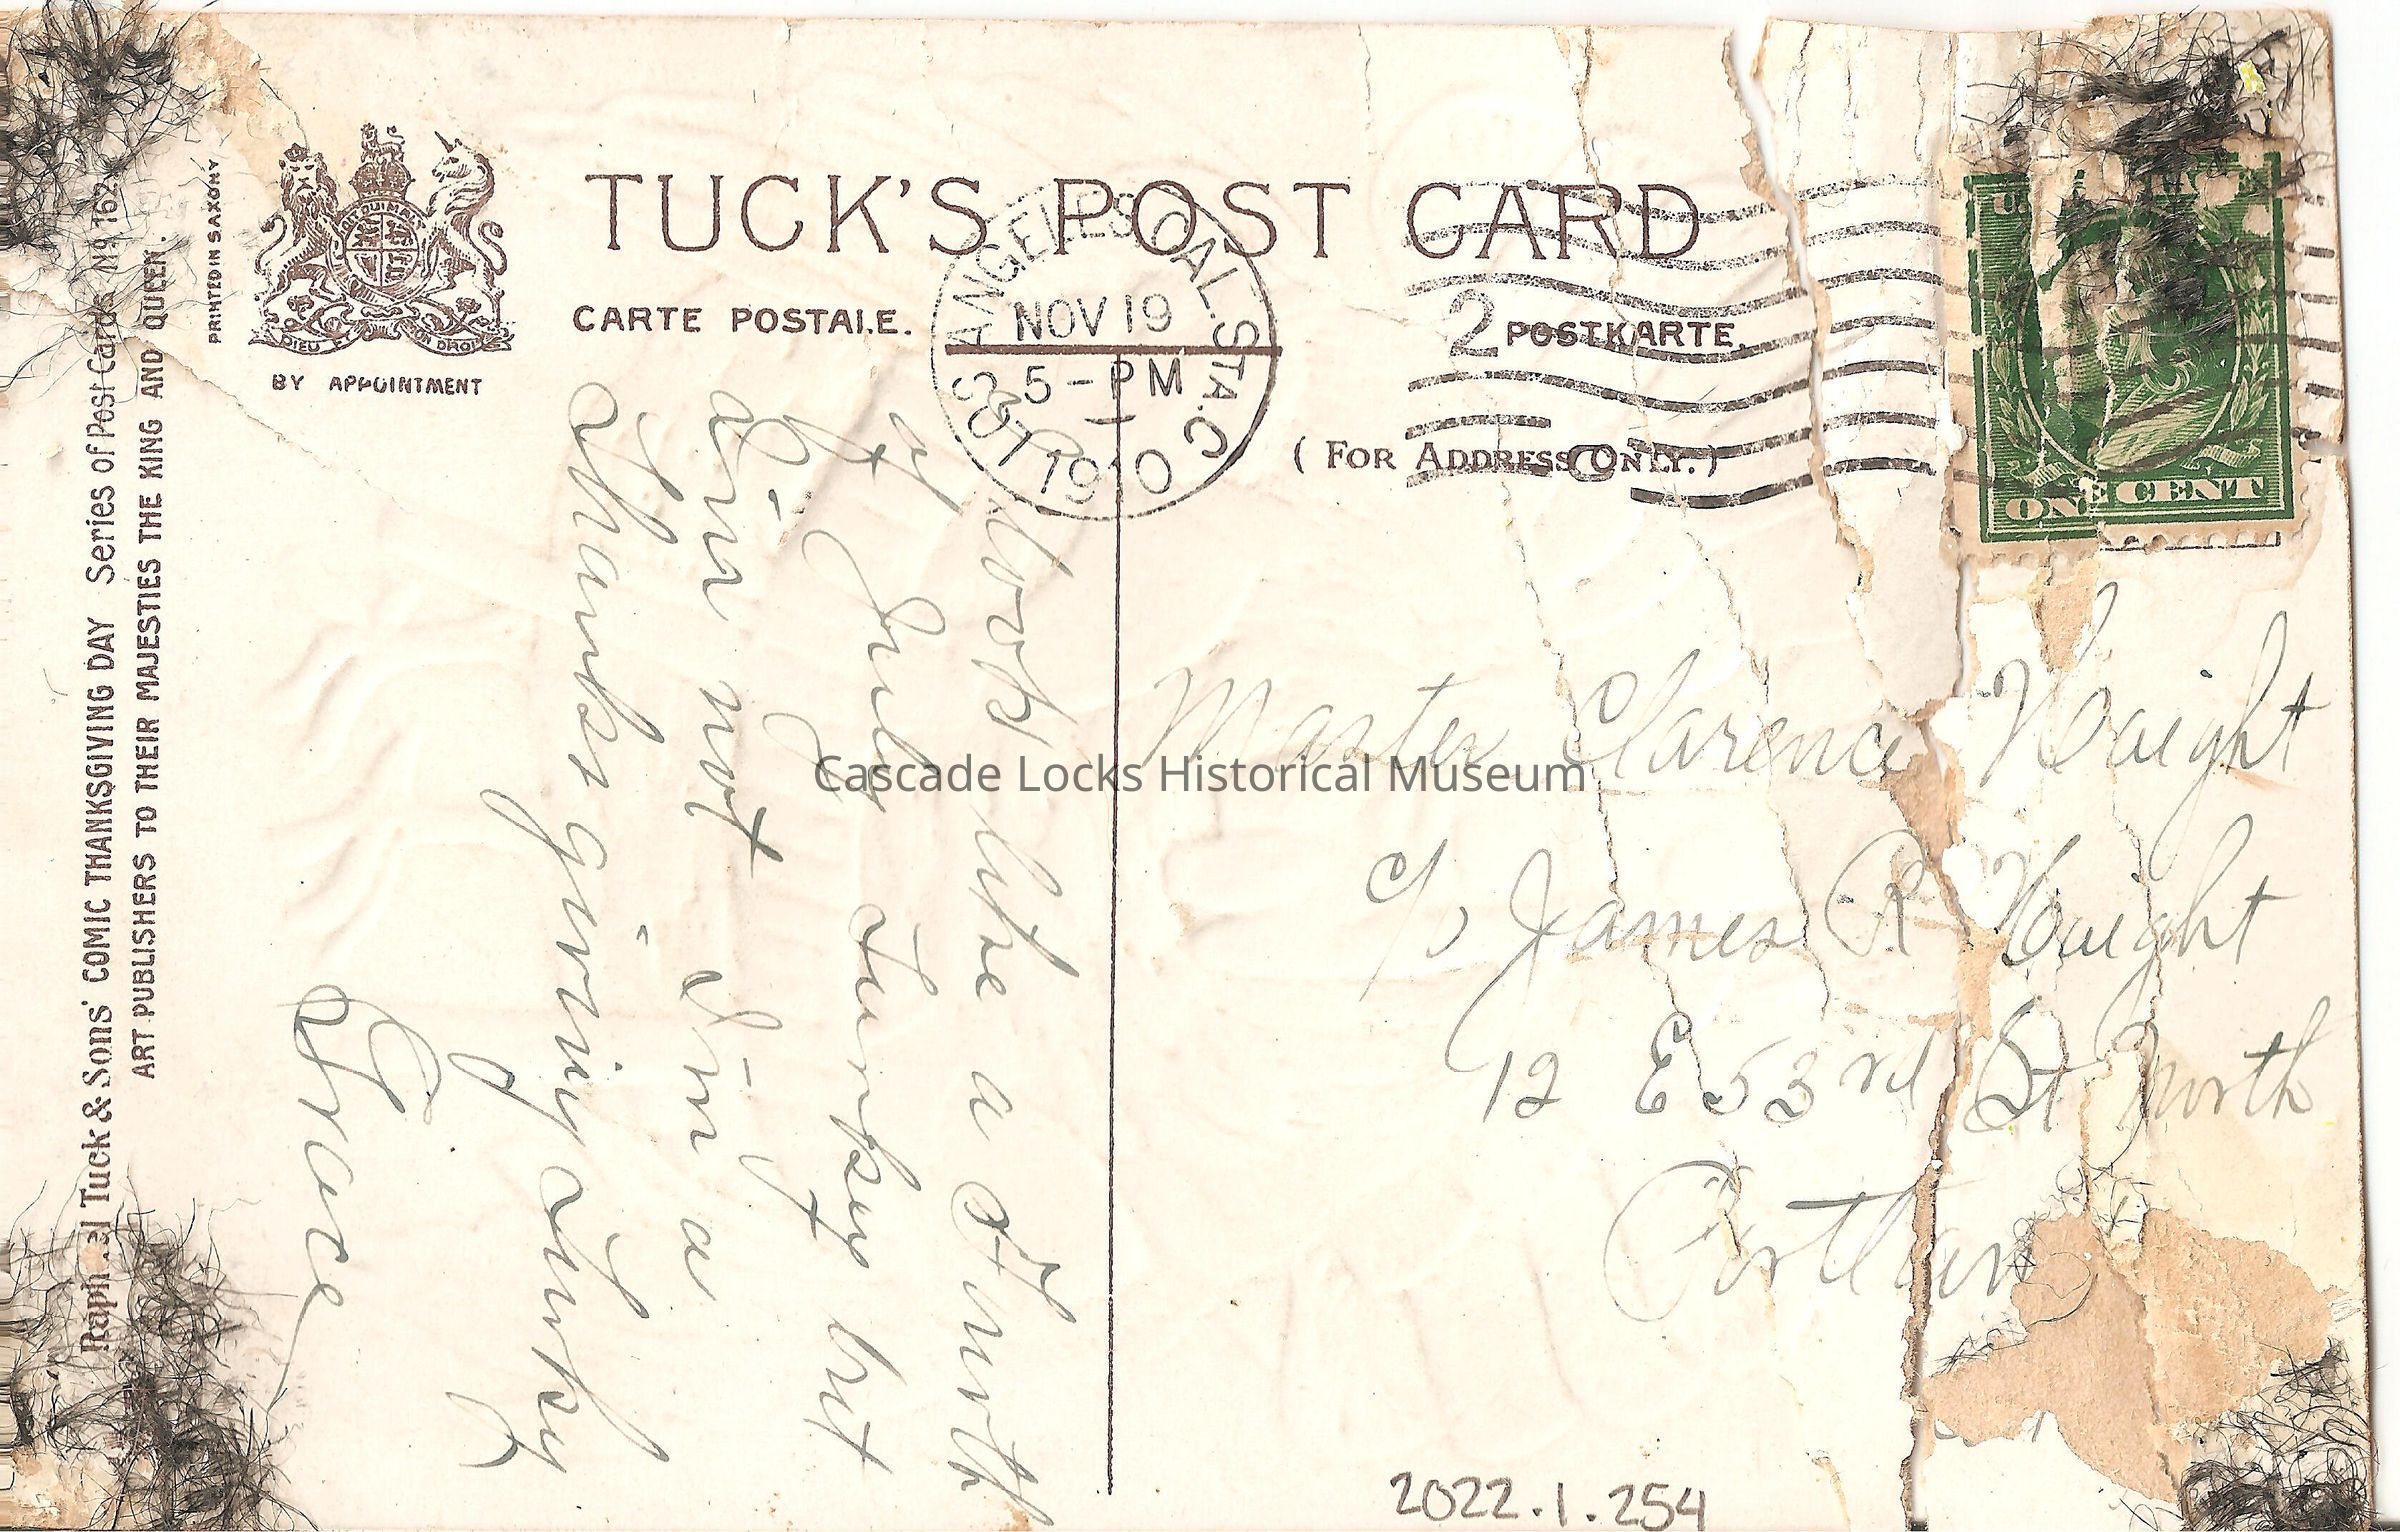 TUCK'S POST CARD
CARTE POSTALE.
POSTKARTE.
(FOR ADDRESS ONLY.)
BY APPOINTMENT
DIEU ET MON DROIT
PRINTED IN SAXONY
Raphael Tuck & Sons' COMIC THANKSGIVING DAY Series of Post Cards No 162
ART PUBLISHERS TO THEIR MAJESTIES THE KING AND QUEEN.
ANGELES, CAL. STA. C
NOV 19
5-PM
1910
2
ONE CENT
I look like a Fourth
of July Turkey but
I'm not I'm a
Thanks giving Turkey
Grace
Master Clarence Haight
c/o James R Haight
12 E 53rd St North
Portlan
Cascade Locks Historical Museum
2022.1.254